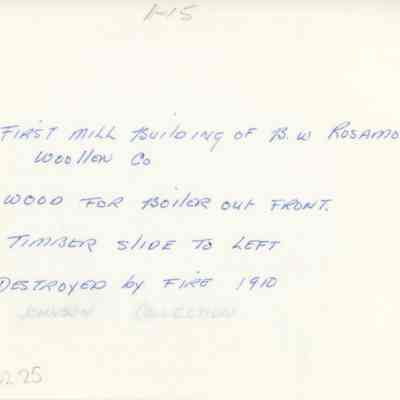 1-15
FIRST MILL BUILDING OF B.W ROSAMO
WOOLLEN CO
WOOD FOR BOILER OUT FRONT.
TIMBER SLIDE TO LEFT
DESTROYED by FIRE 1910
JOHNSON COLLECTION
25